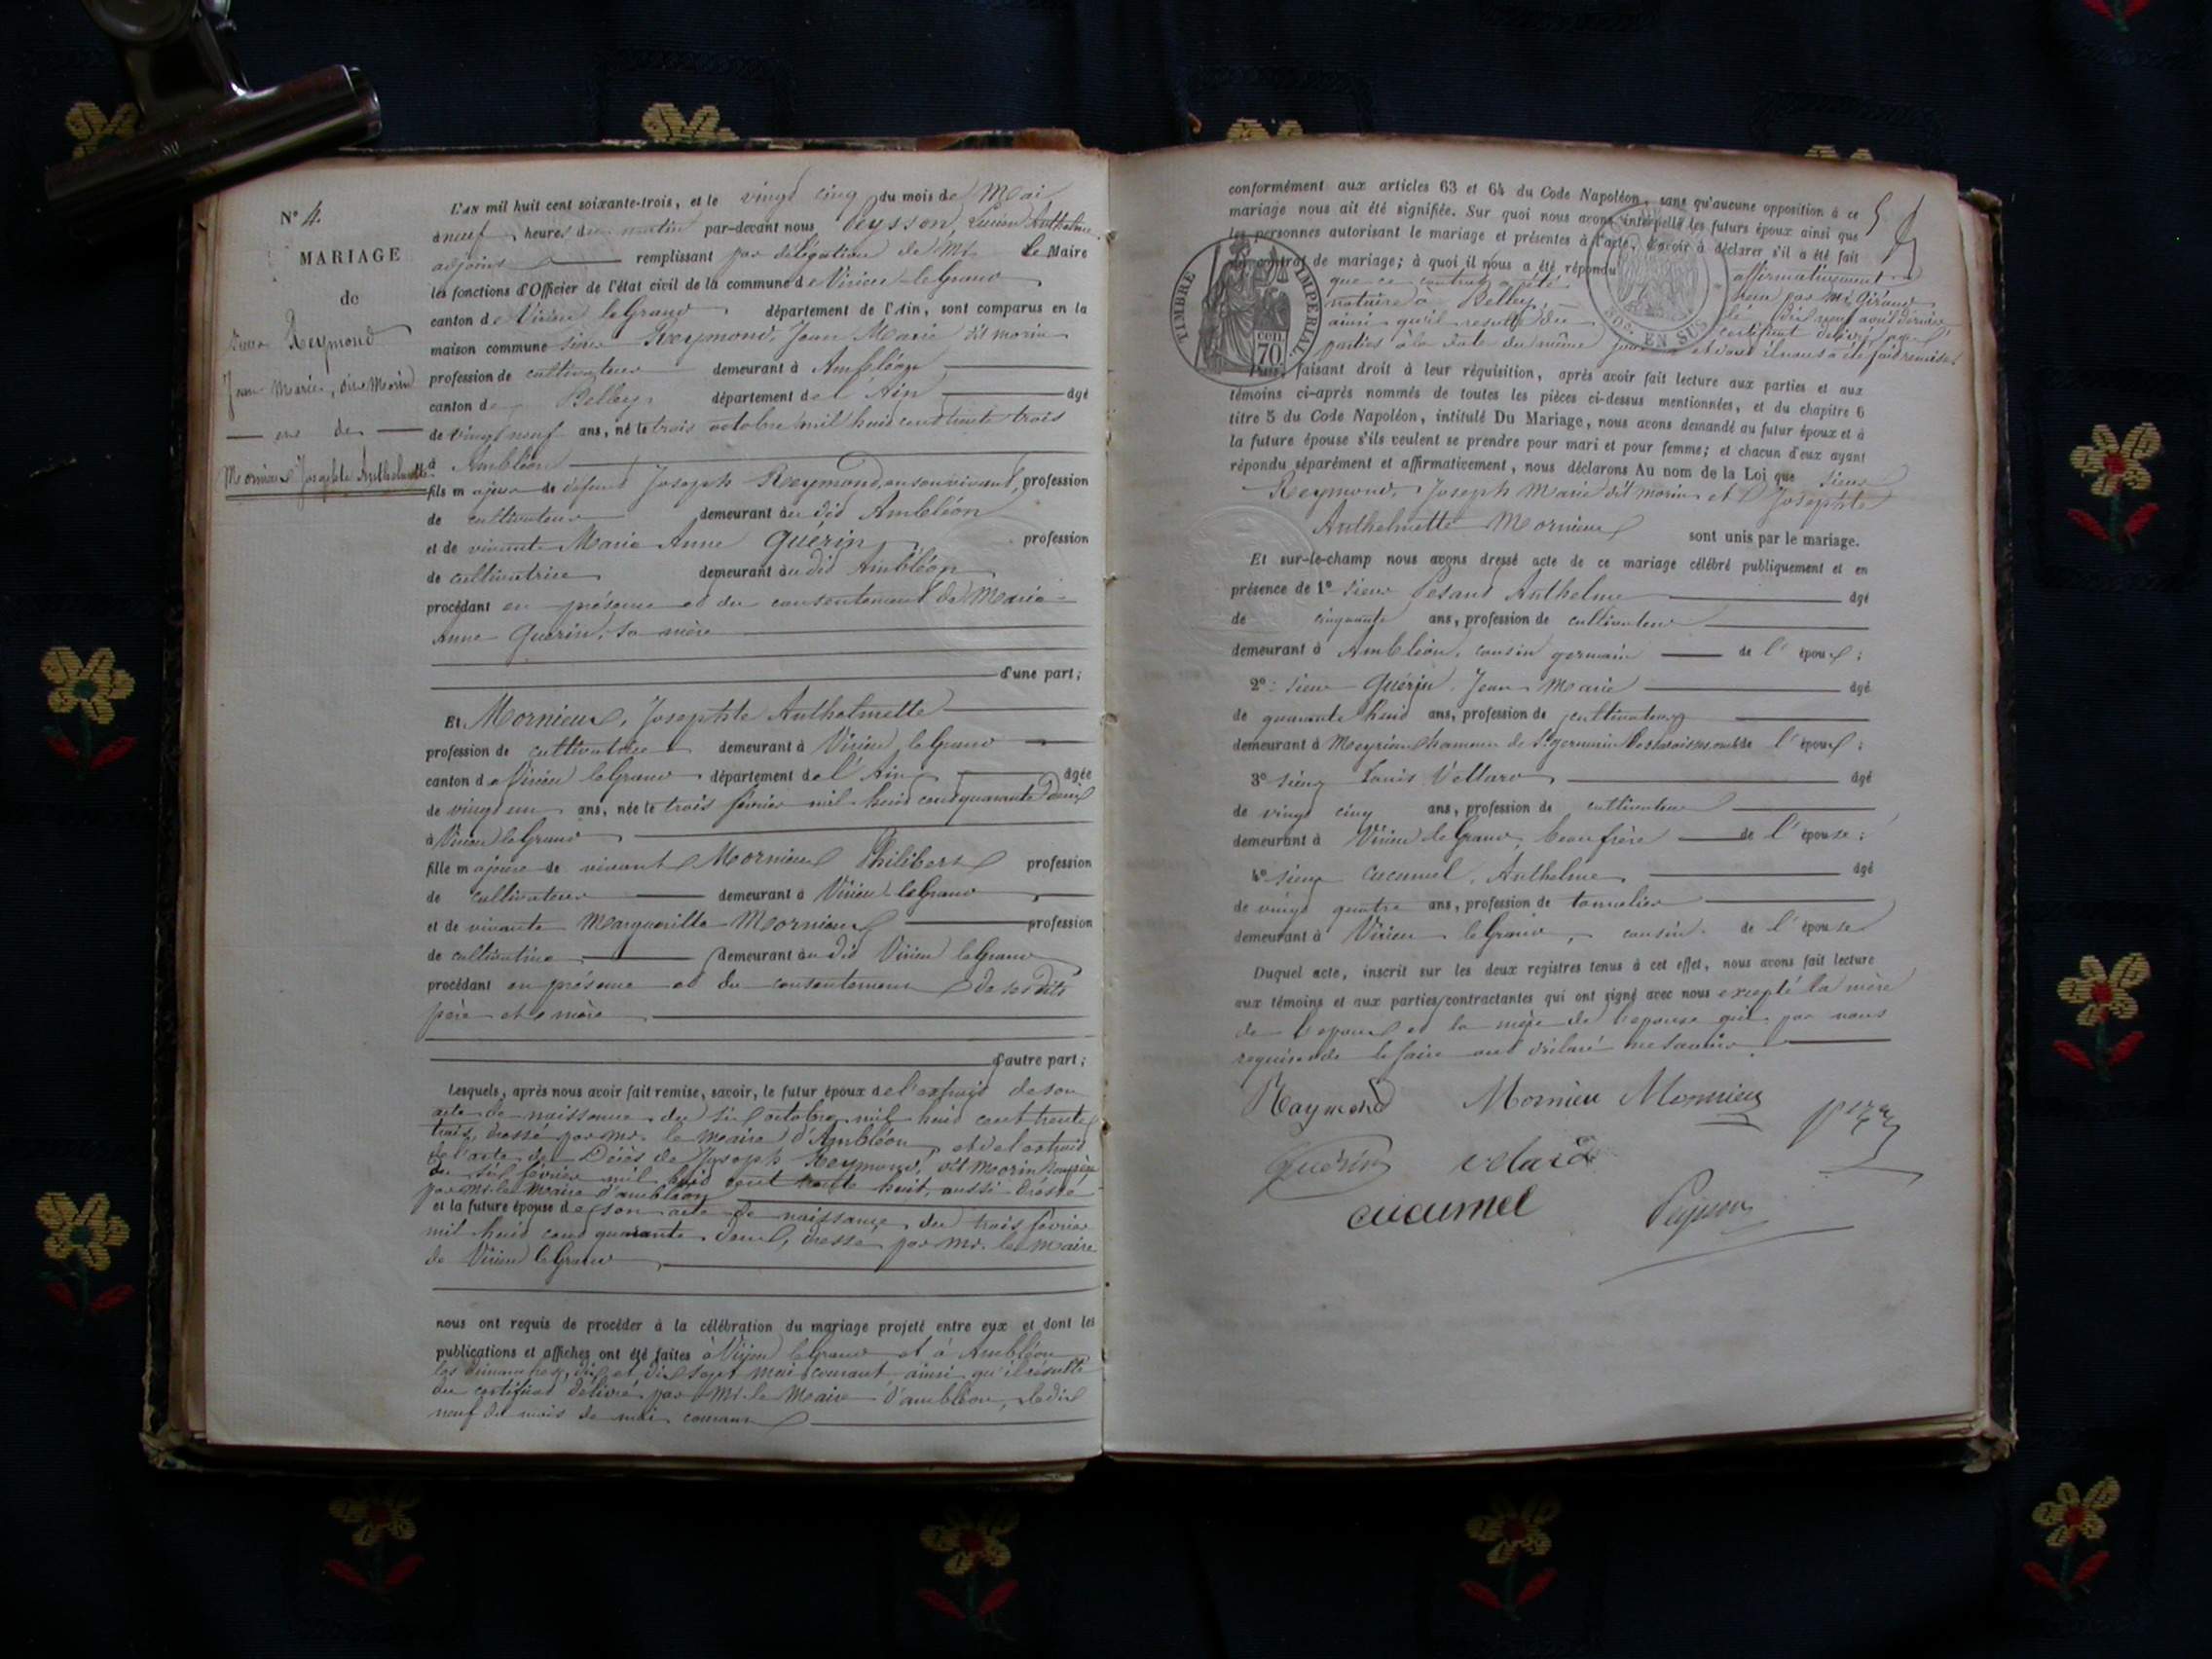 N° 4.
MARIAGE
de
sieur Reymond
Jean Marie, dit Morin
et de
Mornieux Josephte Anthelmette
L'AN mil huit cent soixante-trois, et le vingt cinq du mois de Mai
à neuf heures du matin par-devant nous Peysson, Lucien Anthelme
adjoint remplissant par délégation de Mr. le Maire
les fonctions d'Officier de l'état civil de la commune de Virieu le Grand
canton de Virieu le Grand département de l'Ain, sont comparus en la
maison commune sieur Reymond, Jean Marie dit morin
profession de cultivateur demeurant à Ambléon
canton de Belley département de l'Ain âgé
de vingt neuf ans, né le trois octobre mil huit cent trente trois
à Ambléon
fils majeur de défunt Joseph Reymond, en son vivant, profession
de cultivateur demeurant au dit Ambléon
et de vivante Marie Anne Guérin profession
de cultivatrice demeurant au dit Ambléon
procédant en présence et du consentement de Marie
Anne Guérin, sa mère
d'une part;
Et Mornieux, Josephte Anthelmette
profession de cultivatrice demeurant à Virieu le Grand
canton de Virieu le Grand département de l'Ain âgée
de vingt un ans, née le trois février mil huit cent quarante deux
à Virieu le Grand
fille majeure de vivant Mornieux Philibert profession
de cultivateur demeurant à Virieu le Grand
et de vivante Marguerite Mornieux profession
de cultivatrice demeurant au dit Virieu le Grand
procédant en présence et du consentement de ses dits
père et mère
d'autre part;
Lesquels, après nous avoir fait remise, savoir, le futur époux de l'extrait de son
acte de naissance du six octobre mil huit cent trente
trois, dressé par mr. le maire d'Ambléon, et de l'extrait
de l'acte de Décès de Joseph Reymond, dit Morin son père
du six février mil huit cent trente huit, aussi dressé
par Mr. le Maire d'ambléon
et la future épouse de son acte de naissance du trois février
mil huit cent quarante deux, dressé par mr. le maire
de Virieu le Grand
nous ont requis de procéder à la célébration du mariage projeté entre eux et dont les
publications et affiches ont été faites à Virieu le Grand et à Ambléon
les dimanches, dix et dix sept mai courant ainsi qu'il résulte
du certificat délivré par Mr. le Maire d'ambléon, le dix
neuf du mois de mai courant
conformément aux articles 63 et 64 du Code Napoléon, sans qu'aucune opposition à ce
mariage nous ait été signifiée. Sur quoi nous avons interpellé les futurs époux ainsi que
les personnes autorisant le mariage et présentes à l'acte, d'avoir à déclarer s'il a été fait
un contrat de mariage; à quoi il nous a été répondu affirmativement
que ce contrat a été reçu par Mr. Giraud
notaire à Belley, le dix neuf avril dernier
ainsi qu'il résulte du certificat délivré aux
parties à la date du même jour et dont il nous a été fait remise.
Nous, faisant droit à leur réquisition, après avoir fait lecture aux parties et aux
témoins ci-après nommés de toutes les pièces ci-dessus mentionnées, et du chapitre 6
titre 5 du Code Napoléon, intitulé Du Mariage, nous avons demandé au futur époux et à
la future épouse s'ils veulent se prendre pour mari et pour femme; et chacun d'eux ayant
répondu séparément et affirmativement, nous déclarons Au nom de la Loi que sieur
Reymond, Joseph Marie dit morin et Josephte
Anthelmette Mornieux sont unis par le mariage.
Et sur-le-champ nous avons dressé acte de ce mariage célébré publiquement et en
présence de 1° sieur Pesant Anthelme âgé
de cinquante ans, profession de cultivateur
demeurant à Ambléon, cousin germain de l'époux;
2° sieur Guérin, Jean Marie âgé
de quarante huit ans, profession de cultivateur
demeurant à Meyrieu hameau de St. germain de l'époux;
3° sieur Louis Vellard âgé
de vingt cinq ans, profession de cultivateur
demeurant à Virieu le Grand, beau frère de l'épouse;
4° sieur Cucumel, Anthelme âgé
de vingt quatre ans, profession de tonnelier
demeurant à Virieu le Grand, cousin de l'épouse
Duquel acte, inscrit sur les deux registres tenus à cet effet, nous avons fait lecture
aux témoins et aux parties contractantes qui ont signé avec nous excepté la mère
de l'époux et la mère de l'épouse qui par nous
requises de le faire ont déclaré ne savoir
Raymond Mornieu Mornieu
Guérin velard
cucumel Peysson
TIMBRE IMPÉRIAL
70 cen.
50c. EN SUS